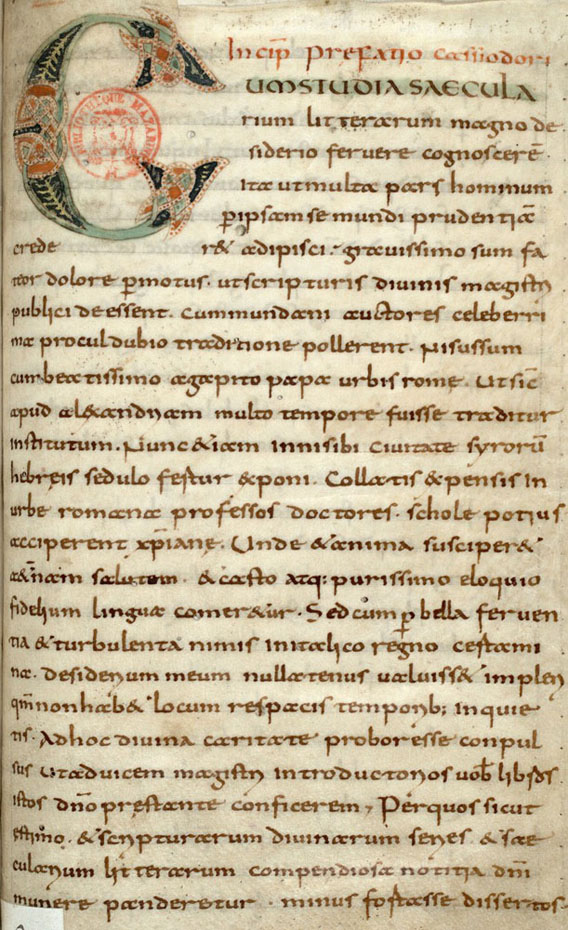 Incip̄ prefatio cassiodori
CUMSTUDIA SAECULA
rium litterarum magno de
siderio fervere cognoscerē
ita ut multa pars hominum
p̄ ipsam se mundi prudentia
crede r& adipisci. gravissimo sum fa
teor dolore p̄motus. ut scripturis divinis magistri
publici deessent. Cum mundani auctores celeberri
ma procul dubio traditione pollerent. Nisus sum
cum beatissimo agapito papa urbis rome. Ut sic̄
apud alexandriam multo tempore fuisse traditur
institutum. Nunc &iam in nisibi civitate syrorū
hebreis sedulo fertur exponi. Collatis expensis in
urbe romana professos doctores. schole potius
acciperent xp̄iane. Unde & anima susciper&
a&nam̄ salutem. & casto atq: purissimo eloquio
fidelium lingua comer&ur. Sed cum p̄ bella ferven
tia & turbulenta nimis in italico regno certami
na. desiderium meum nullatenus valuiss& impleri
qm̄ non hab& locum res pacis temporib; inquie
tis. Ad hoc divina caritate probor esse conpul
sus ut ad vicem magistri introductorios vob̄ lib̄
istos dn̄o prestante conficerem, Per quos sicut
estimo. & scripturarum divinarum series & sae
cularium litterarum compendiosa notitia dn̄i
munere panderetur. minus fortasse dissertos.
BIBLIOTHEQUE MAZARINE